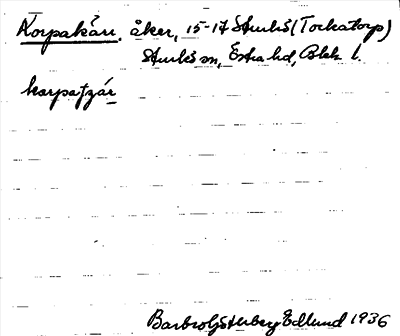 Korpakärr, åker, 15-17 Sturkö (Torkatorp)
Sturkö sn, Östra hd, Blek. l.
kårpatjär
Barbro Österberg Edlund 1936